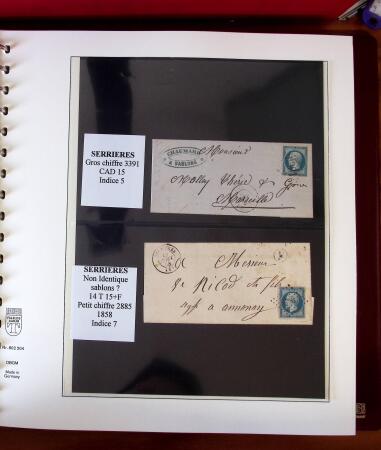 SERRIERES
Gros chiffre 3391
CAD 15
Indice 5
CHAUMARD
A SABLONS
Monsieur
Malley Chérie &
Marseille
SERRIERES
Non Identique
sablons ?
14 T 15+F
Petit chiffre 2885
1858
Indice 7
Messieurs
Nicod et fils
à annonay
Nr. 802 204
DBGM
Made in
Germany